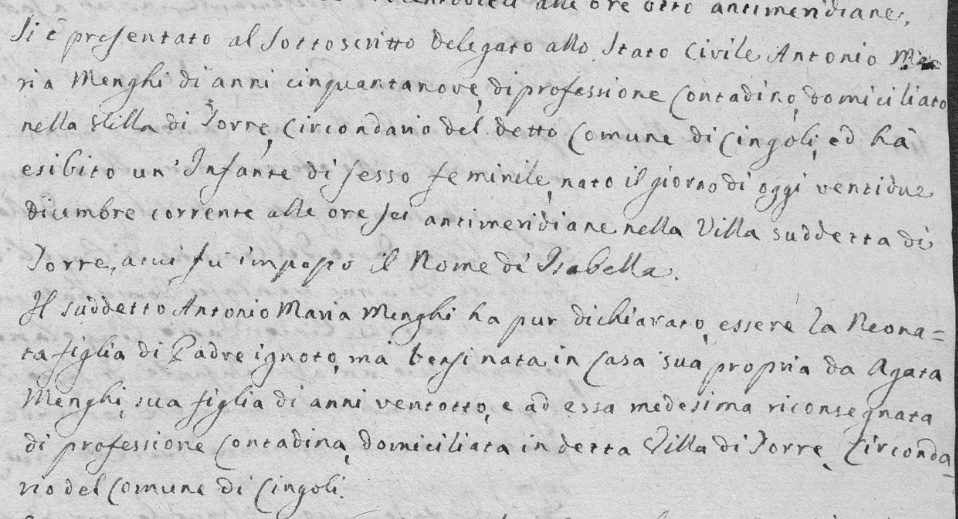 alle ore otto antimeridiane,
Si è presentato al sottoscritto delegato allo Stato Civile Antonio Ma
ria Menghi di anni cinquantanove, di professione Contadino, domiciliato
nella Villa di Torre, Circondario del detto Comune di Cingoli, ed hà
esibito un' Infante di sesso feminile, nato il giorno di oggi ventidue
dicembre corrente alle ore sei antimeridiane nella Villa suddetta di
Torre, a cui fu imposto il Nome di Isabella.
Il suddetto Antonio Maria Menghi ha pur dichiarato, essere la Neona=
ta figlia di Padre ignoto, ma bensi nata in Casa sua propria da Agata
Menghi, sua figlia di anni ventotto, e ad essa medesima riconsegnata
di professione Contadina, domiciliata in detta Villa di Torre, Circonda_
rio del Comune di Cingoli.